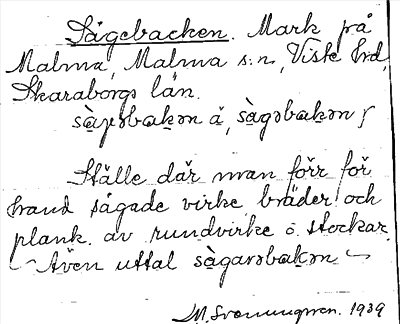 Sågebacken. Mark på
Malma, Malma s:n, Viste hrd,
Skaraborgs län.
sàɣəbakən å, sàgəbakən ʃ
Ställe där man förr för
hand sågade virke bräder och
plank av rundvirke o. stockar.
Även uttal sàgarəbakən
1939